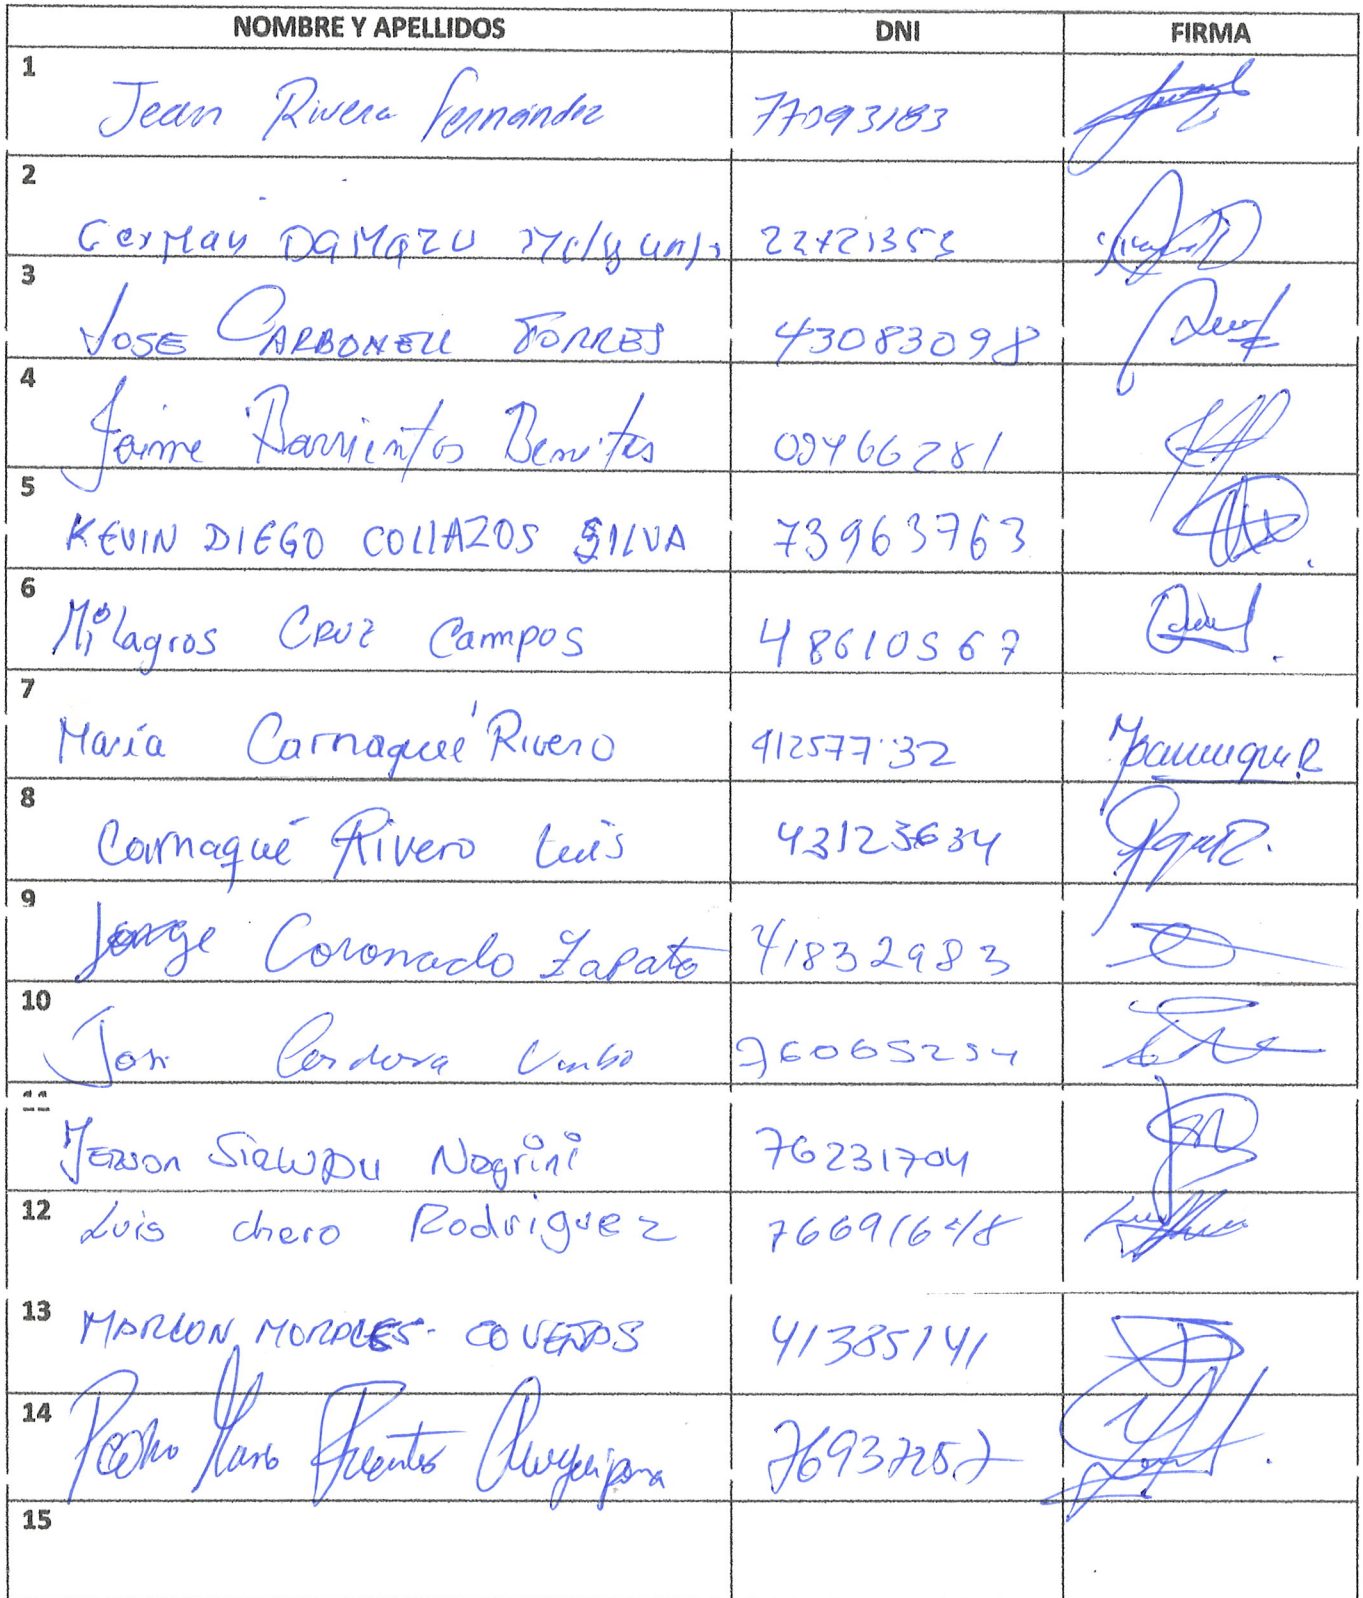 NOMBRE Y APELLIDOS DNI FIRMA
1 Jean Rivera Fernández 77093183
2 German DAMAZU
3 JOSE CARBONELL TORRES 43083098
4 Jaime Barrientos Benites 09466281
5 KEVIN DIEGO COLLAZOS SILVA 73963763
6 Milagros CRUZ Campos 48610567
7 María Carnaqué Rivero 41257732
8 Carnaqué Rivero Luis 43123634
9 Jorge Coronado Zapata 41832983
10 Cordova 76065254
11 JERSON Nagrini 76231704
12 Luis chero Rodriguez 76691648
13 MARLON MORALES 41385141
14 Pedro Fuentes
15